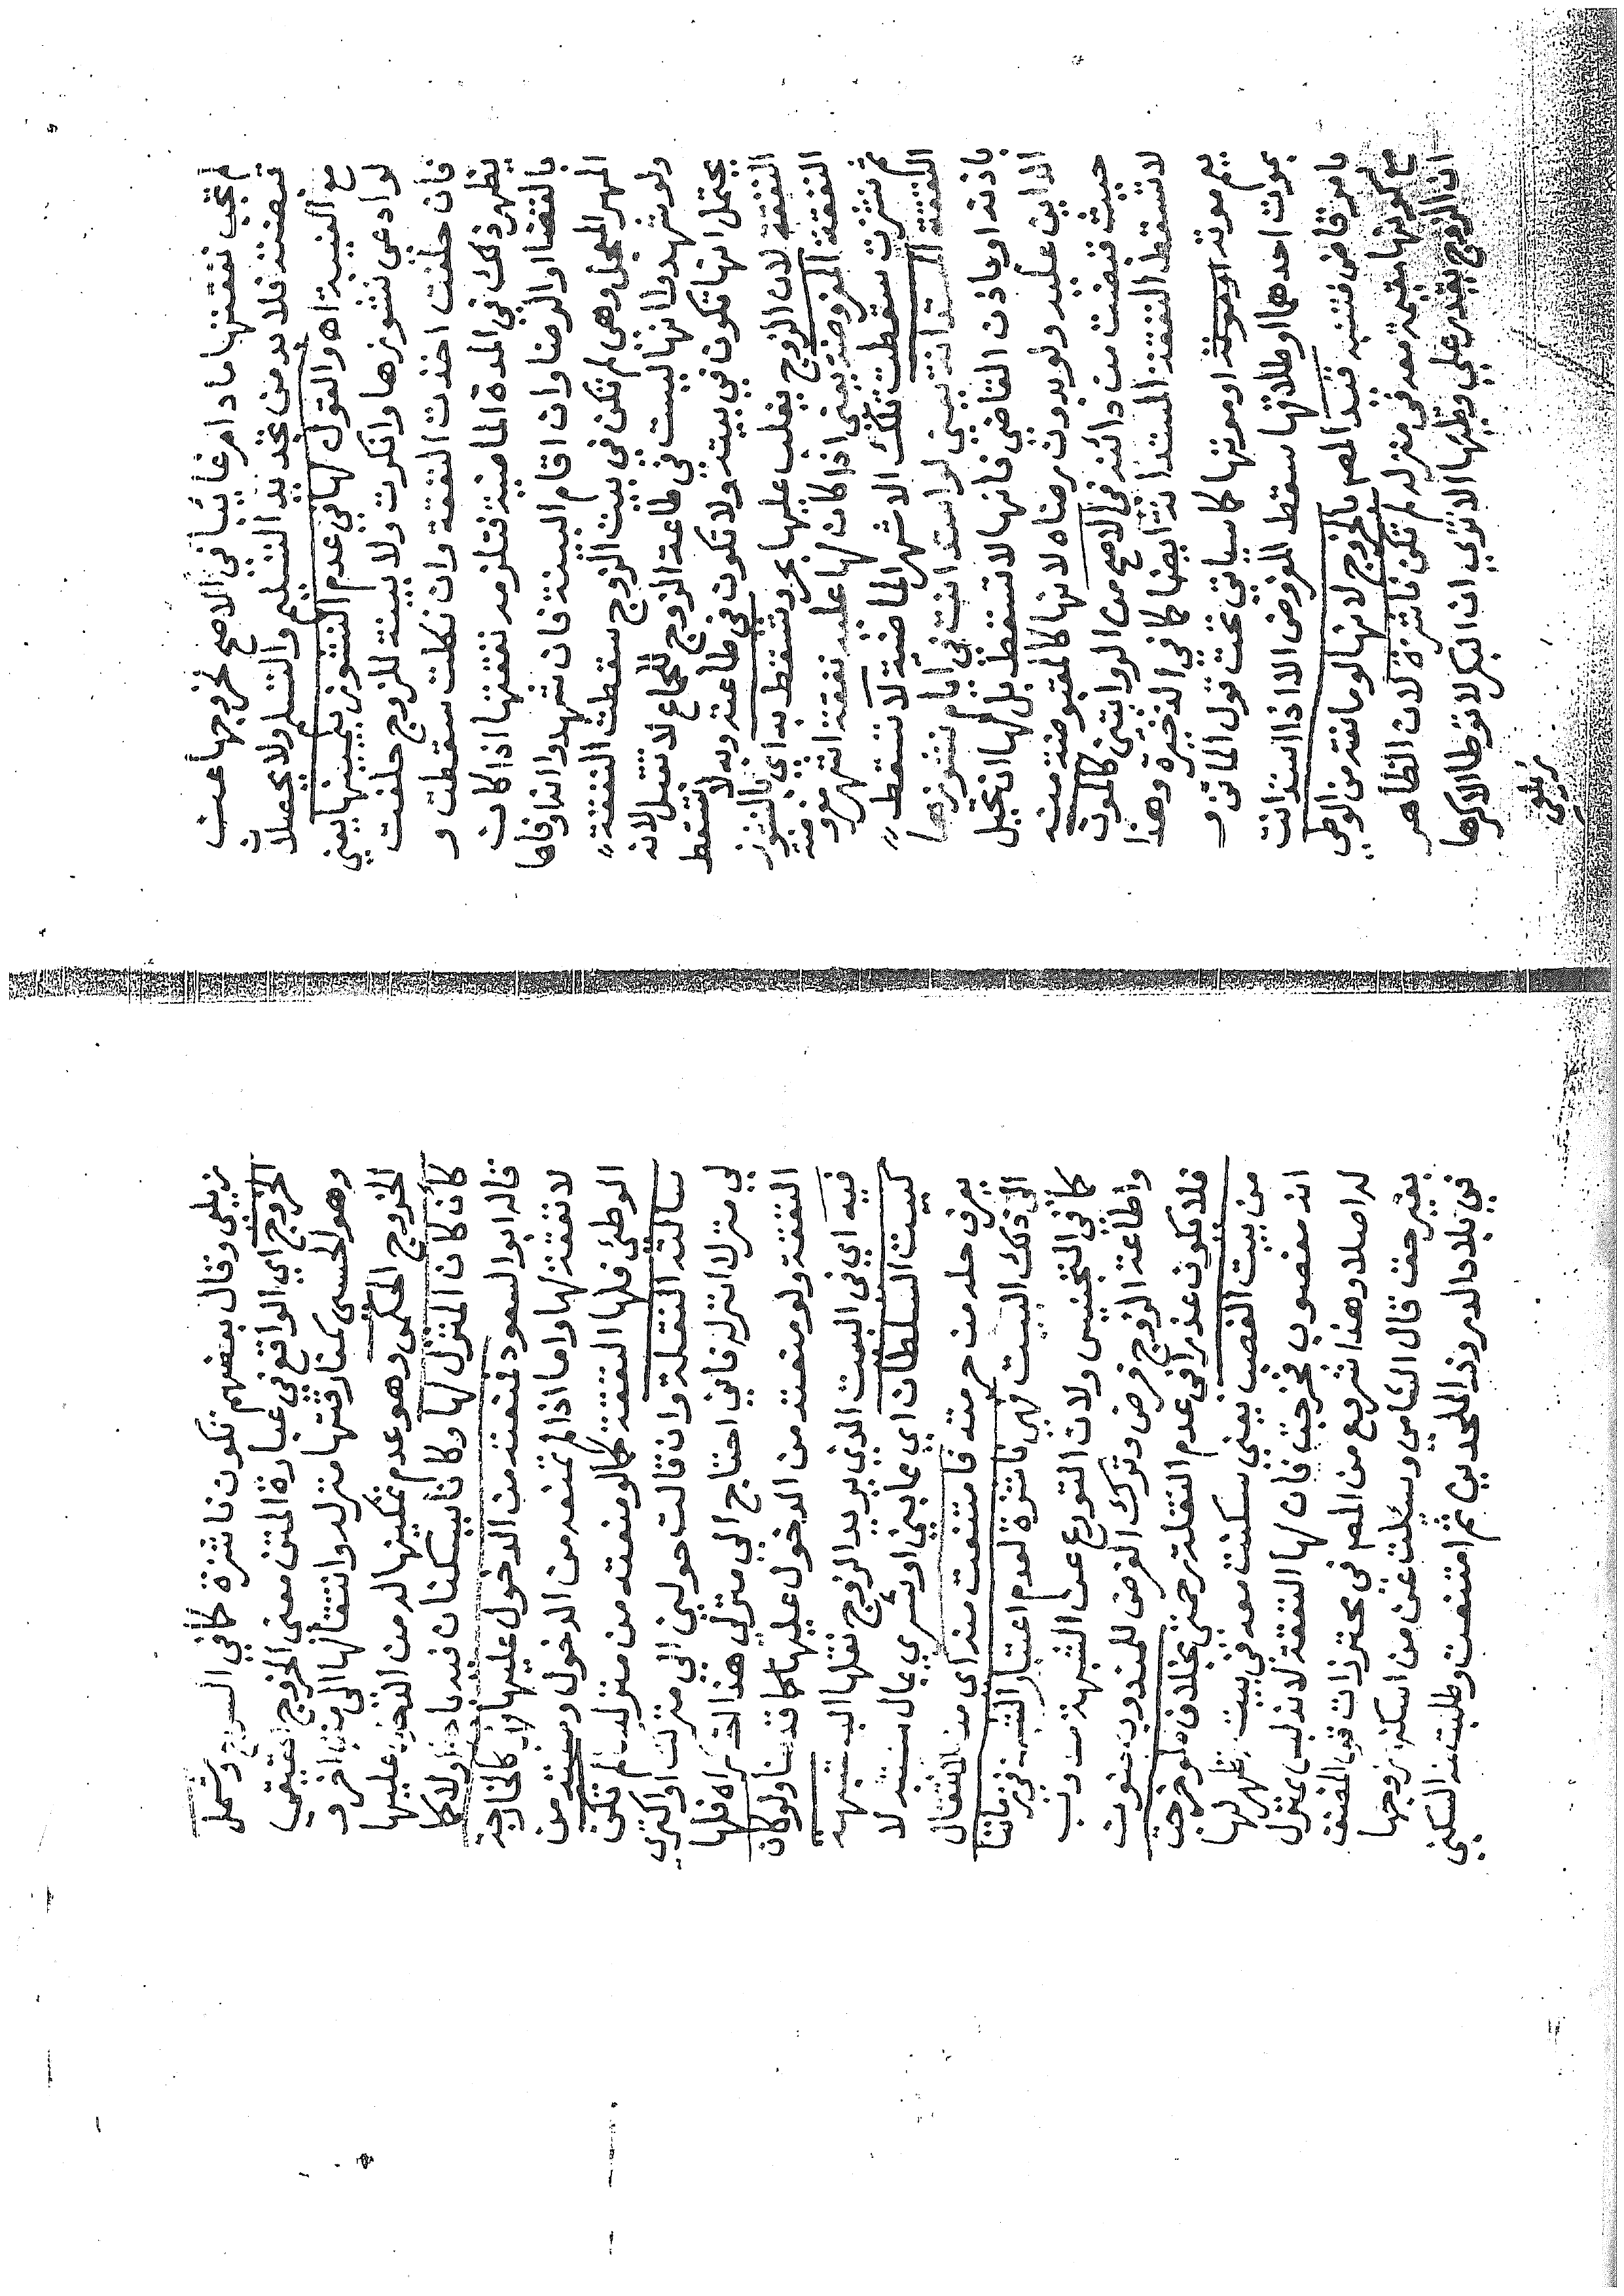 لم تجب نفقتها ما دام غائبا في الاصح لخروجها عن
قبضته فلا بد من تجديد التسليم والتسلم ولا يحصلان
مع الغيبة اه والقول لها في عدم النشوز بيمينها يعني
لو ادعى نشوزها وانكرت ولا بينة للزوج حلفت
فان حلفت اخذت النفقة وان نكلت سقطت و
يظهر ذلك في المدة الماضية فتلزمه نفقتها اذا كانت
بالقضا او الرضا وان اقام البينة فان شهدوا انه اوفاها
المهر المعجل وهي لم تكن في بيت الزوج سقطت النفقة
ولو شهدوا انها ليست في طاعة الزوج للجماع لا تقبل لانه
يحتمل انها تكون في بيته ولا تكون في طاعته وبه لا تسقط
النفقة لان الزوج يغلب عليها بحر وتسقط به اي بالنشوز
النفقة المفروضة يعني اذا كان لها عليه نفقة اشهر مفروضة
ثم نشزت سقطت تلك الاشهر الماضية لا تسقط
النفقة المستدانة يعني لو استدانت في ايام نشوزها
باذنه او باذن القاضي فانها لا تسقط بل لها ان تحيل
الداين عليه ولو بدون رضاه لانها كالمقبوضة منه
حيث قبضت من دائنه في الاصح من الروايتين كالموت
لا تسقط النفقة المستدانة ايضا كما في الذخيرة وهذا
يعم موته او موتها كما سياتي تحت قول الماتن و
بموت احدهما او طلاقها سقط المفروض الا اذا استدانت
بامر قاض فتنبه قيد المص بالخروج لانها لو مانعته من الوطي
مع كونها مقيمة معه في منزله لم تكن ناشزة لان الظاهر
ان الزوج يقدر على وطئها الا ترى ان البكر لا توطا الا كرها
زيلعي
زيلعي وقال بعضهم تكون ناشزة كما في السرج وشمل
الخروج اي الواقع في عبارة المتن معنى الخروج الحقيقي
وهو الحسي بمفارقتها منزله وانتقالها الى اخر و
الخروج الحكمي وهو عدم تمكينها له من الدخول عليها
كأن كان المنزل لها وكانا يسكنان فيه
قاله ابو السعود فمنعته من الدخول عليها لانها كالخارجة
لا نفقة لها واما اذا لم تمنعه من الدخول ومنعته من
الوطئ فلها النفقة كما لو منعته من منزله لم تكن
سالته النقلة وان قالت حولني الى منزلك او اكتر
لي منزلا انزله فاني احتاج الى منزلي هذا اخذ كراه فلها
النفقة ولو منعته من الدخول عليها كما قدمنا ولو كان
فيه اي في البيت الذي يريد الزوج نقلها اليه شبهة
كبيت السلطان اي مما بني او شري بمال لا
يعرف حله من حرمته فامتنعت منه اي من الانتقال
الى ذلك البيت فهي ناشزة لعدم اعتبار الشبهة في زماننا
كما في التجنيس ولان التورع عن الشبهة مندوب
واطاعة الزوج فرض وترك الفرض للمندوب ممنوع
فلا يكون عذرا في عدم النقلة رحمتي بخلاف ما لو خرجت
من بيت الغصب يعني سكنت معه في بيت ظهر لها
انه مغصوب فخرجت فان لها النفقة لانه ليس بمنزل
له اصلا وهذا شروع من المص في محترزات قول المصنف
بغير حق قال الشامي وسئلت عن من اسكنها زوجها
في بلاد الدروز الملحدين ثم امتنعت وطلبت منه السكنى